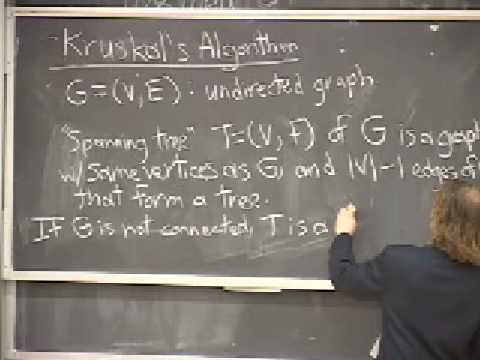 Kruskal's Algorithm
G=(V,E): undirected graph
"Spanning tree" T=(V,F) of G is a graph
w/same vertices as G, and |V|-1 edges of
that form a tree.
If G is not connected, T is a